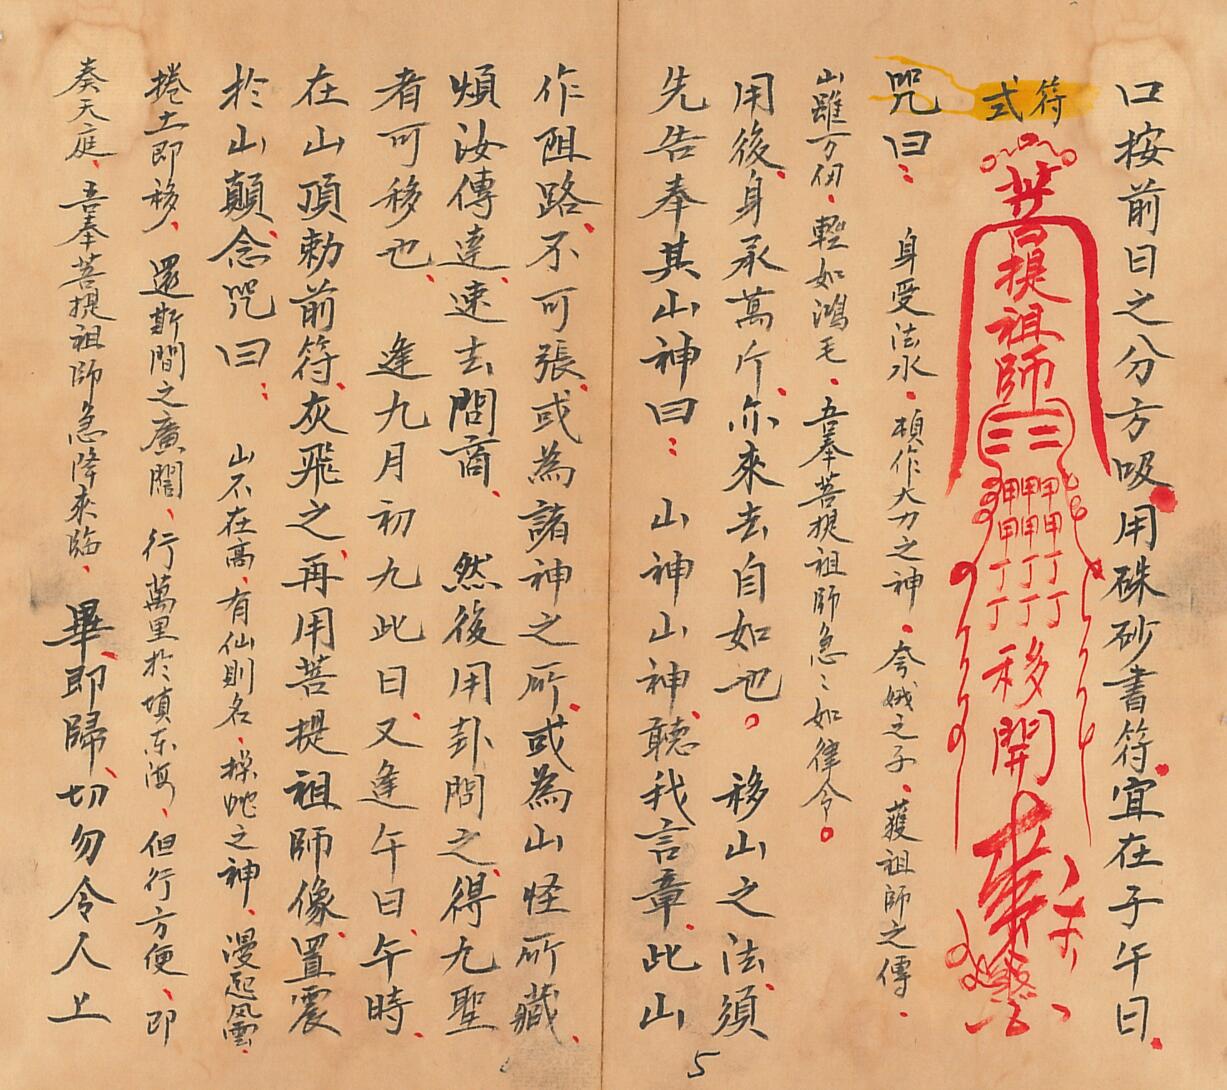 口按前日之分方吸。用硃砂書符。宜在子午日。
符式
菩提祖師
甲甲甲
甲甲甲
丁丁丁
丁丁丁
移開
咒曰：身受法水。頓作大力之神。夸娥之子。獲祖師之傳。
山雖万仞。輕如鴻毛。吾奉菩提祖師急々如律令。
用後。身承萬斤。亦來去自如也。移山之法。須
先告奉其山神曰：山神山神。聽我言章。此山
作阻路。不可張。或為諸神之所。或為山怪所藏。
煩汝傳達。速去問商。然後用卦問之。得九聖
者可移也。逢九月初九此日。又逢午日。午時。
在山頂勅前符。灰飛之。再用菩提祖師像。置震
於山顛。念咒曰：山不在高。有仙則名。操蛇之神。漫起風雲。
捲土即移。還斯間之廣闊。行萬里於填東海。但行方便。即
奏天庭。吾奉菩提祖師急降來臨。畢。即歸。切勿令人上
5